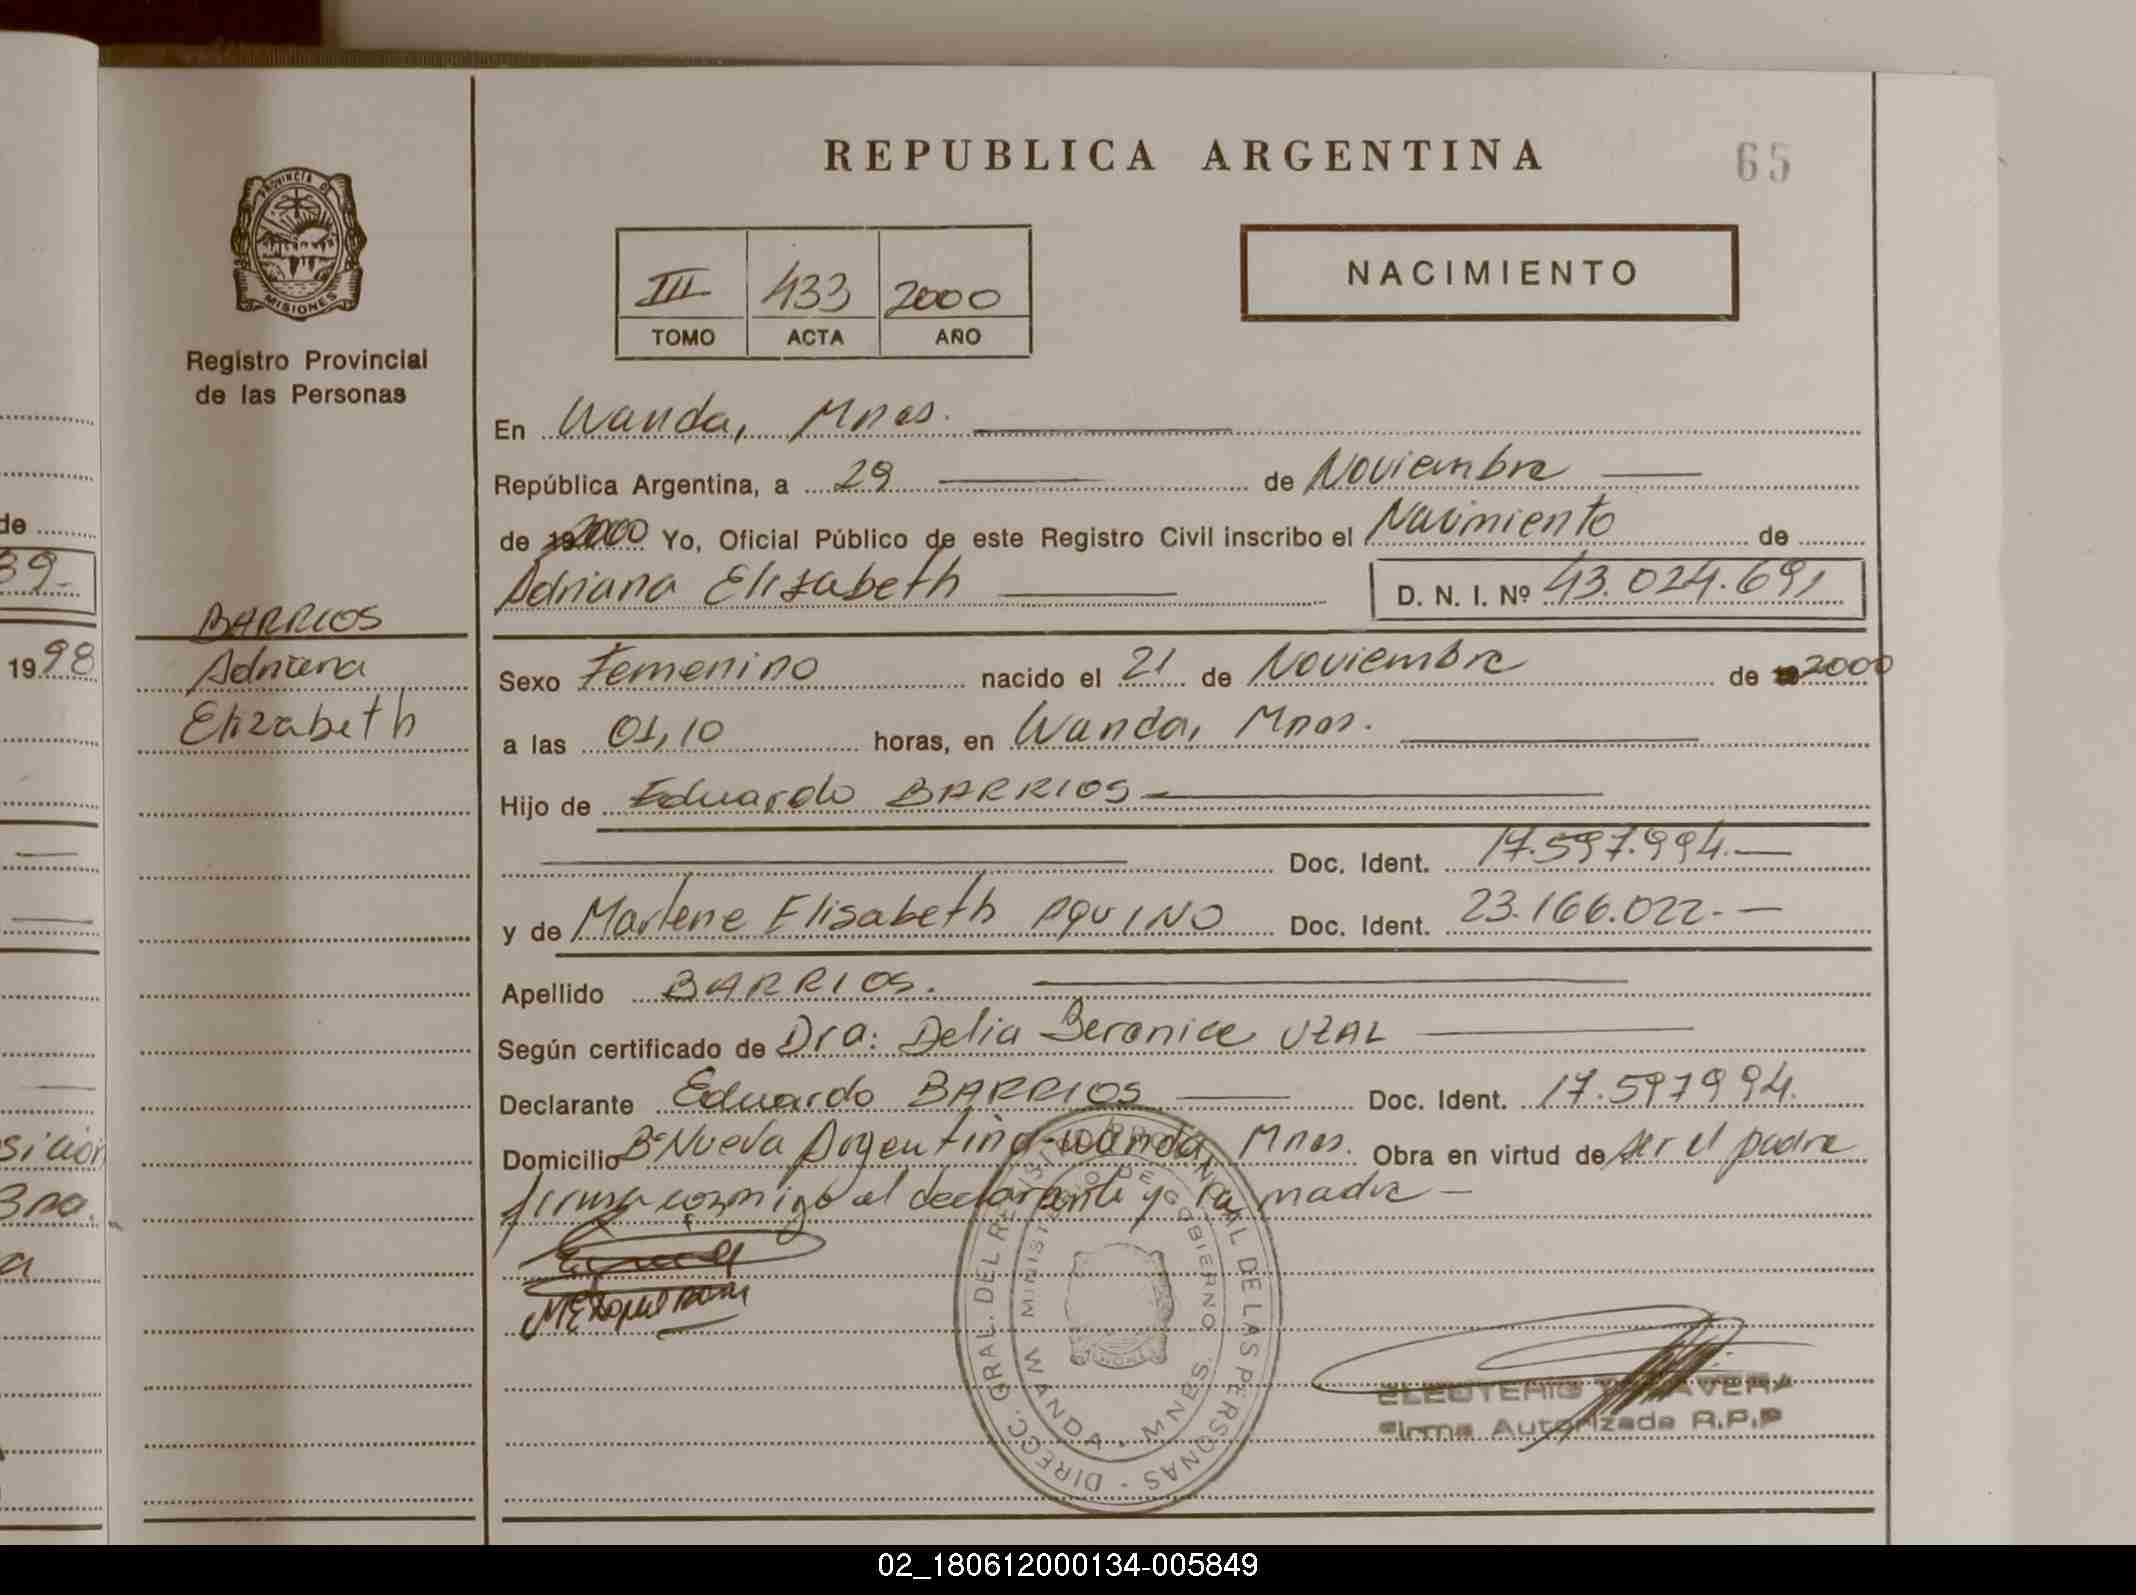 REPUBLICA ARGENTINA
65
PROVINCIA DE
MISIONES
Registro Provincial
de las Personas
III 433 2000
TOMO ACTA AÑO
NACIMIENTO
En Wanda, Mnes.
República Argentina, a 29 de Noviembre
de 2000 Yo, Oficial Público de este Registro Civil inscribo el Nacimiento de
Adriana Elizabeth D. N. I. Nº 43.024.691
BARRIOS
Adriana
Elizabeth
Sexo Femenino nacido el 21 de Noviembre de 2000
a las 01,10 horas, en Wanda, Mnes.
Hijo de Eduardo BARRIOS
Doc. Ident. 17.597.994.
y de Marlene Elisabeth AQUINO Doc. Ident. 23.166.022.
Apellido BARRIOS.
Según certificado de Dra: Delia Beronice UZAL
Declarante Eduardo BARRIOS Doc. Ident. 17.597994.
Domicilio Bº Nueva Argentina-Wanda, Mnes. Obra en virtud de ser el padre
firma conmigo el declarante y la madre
DIRECC. GRAL. DEL REGISTRO PROVINCIAL DE LAS PERSONAS
MINISTERIO DE GOBIERNO
WANDA - MNES.
ELEUTERIO
Firma Autorizada R.P.P
de
39.
1998
sición
02_180612000134-005849